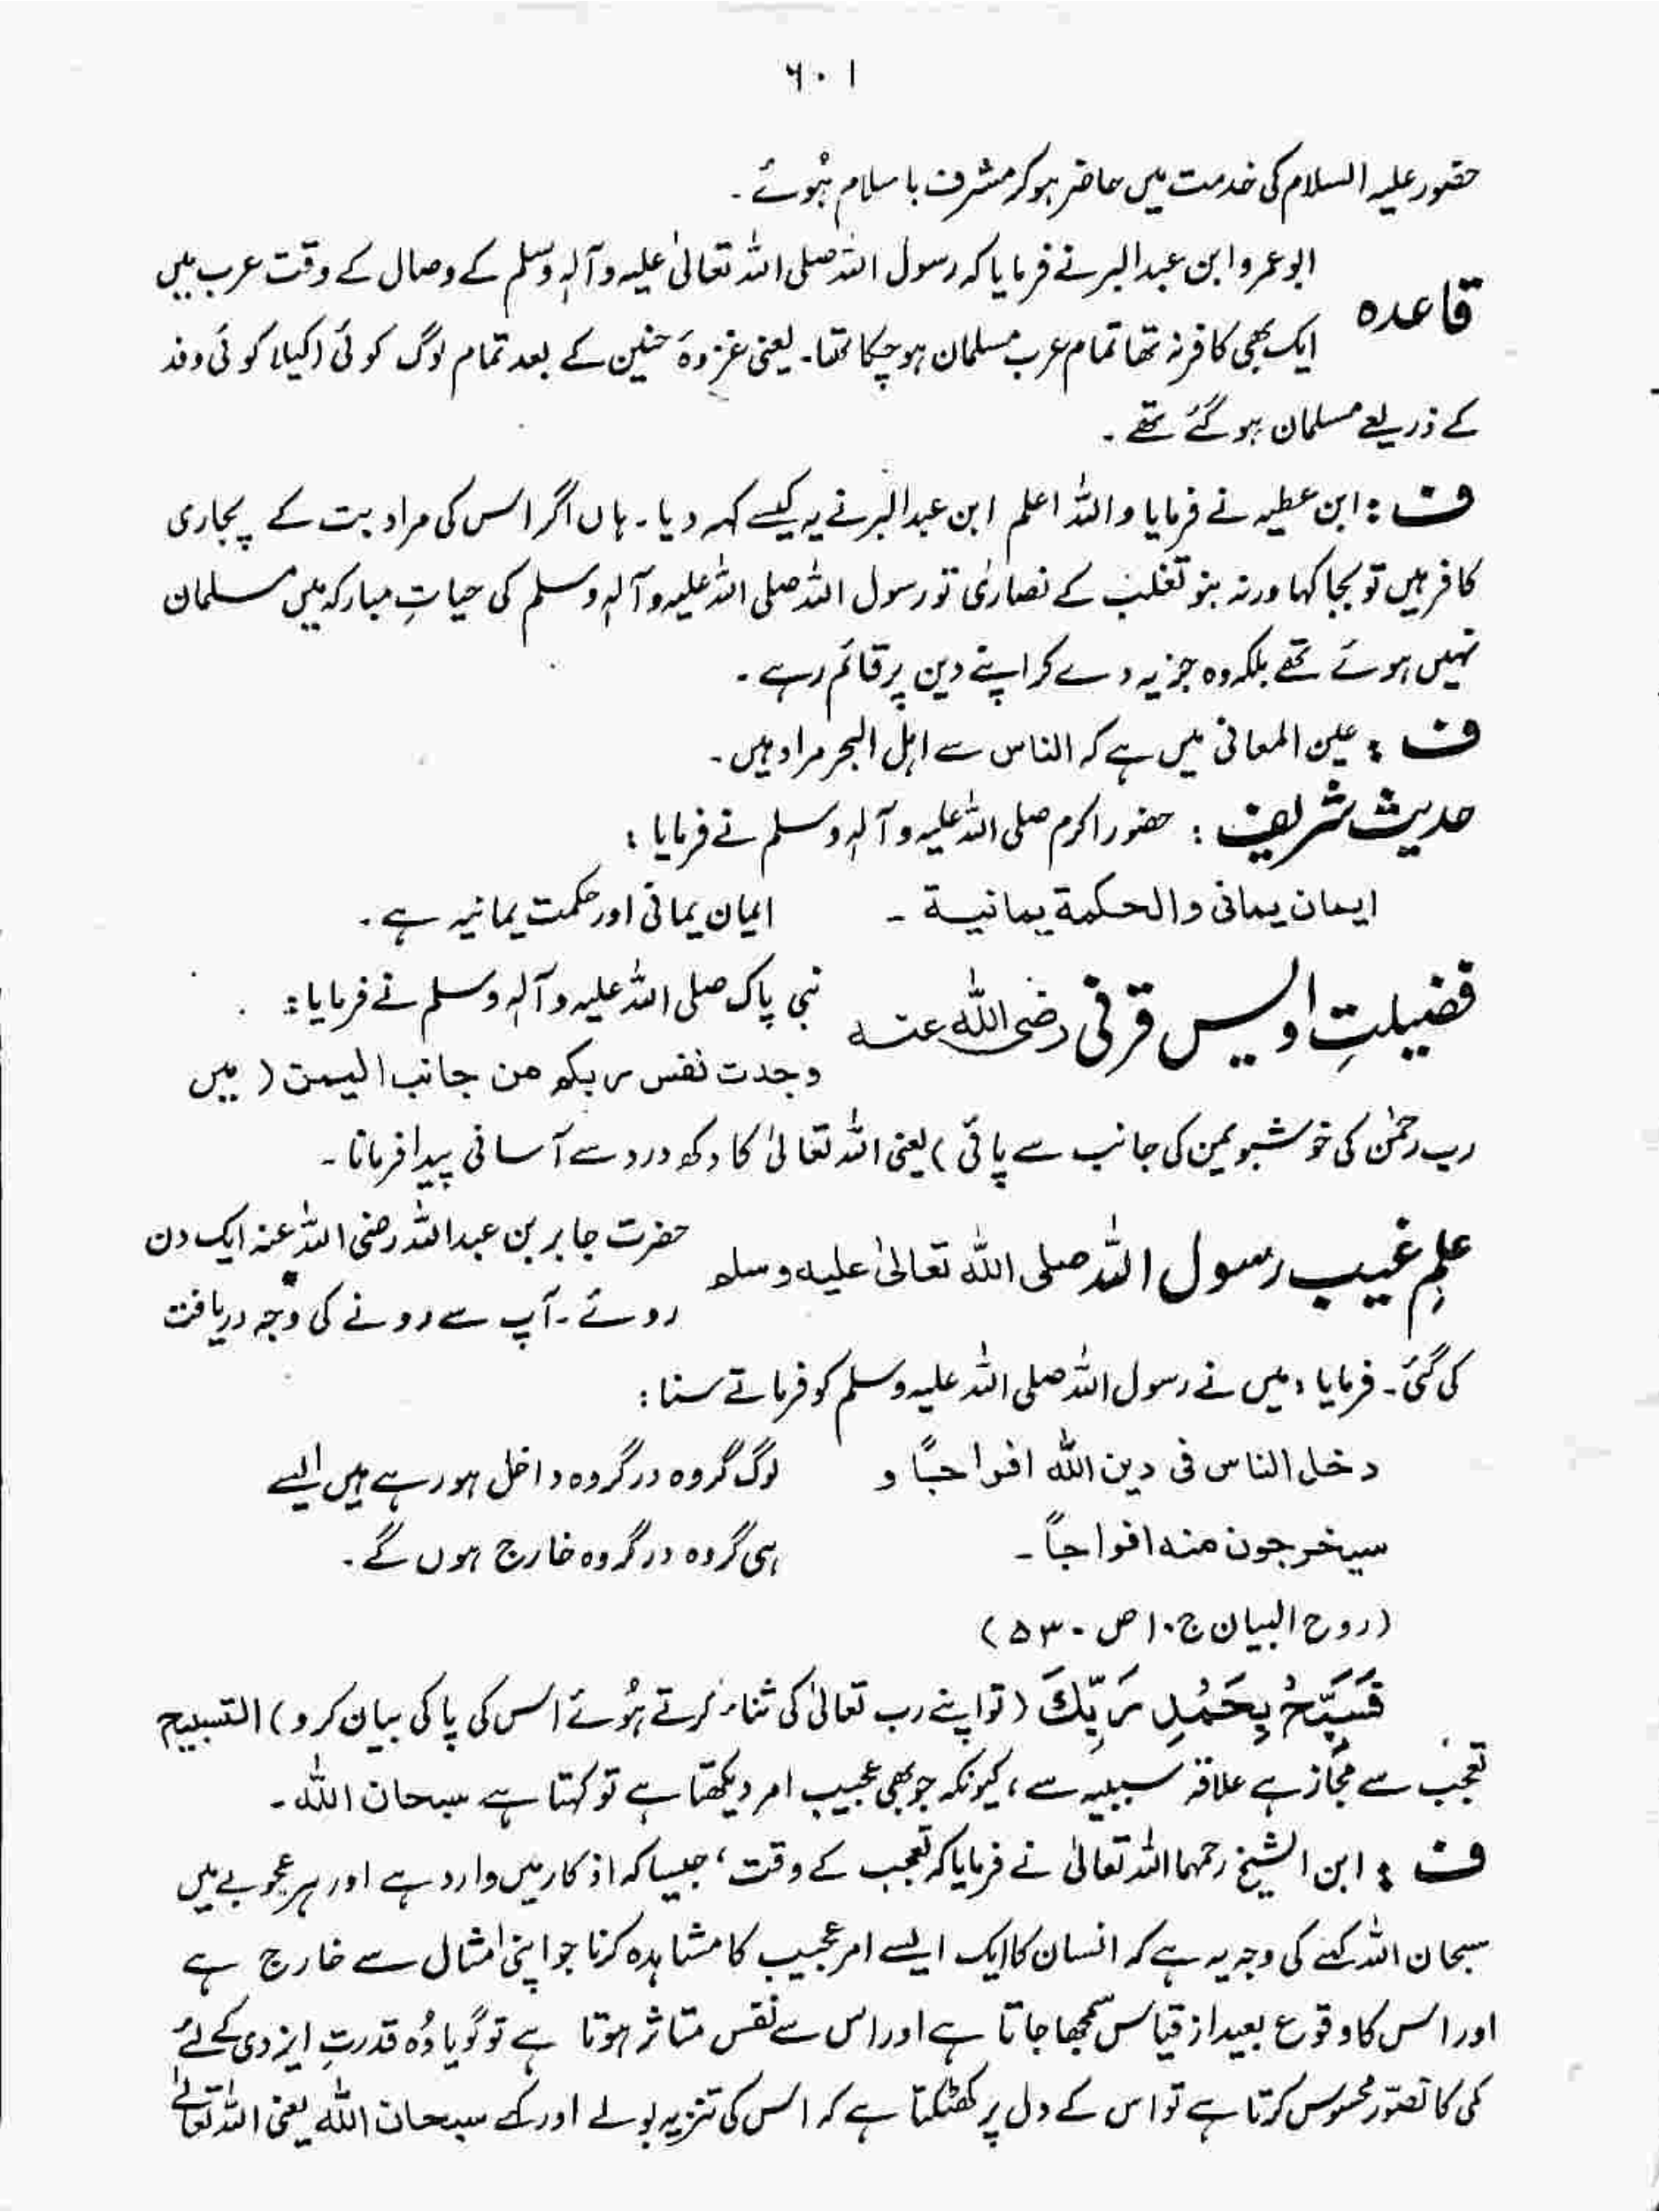 ۶۰۱
حضور علیہ السلام کی خدمت میں حاضر ہو کر مشرف باسلام ہُوئے۔
قاعدہ
ابو عمرو ابن عبدالبر نے فرمایا کہ رسول اللہ صلی اللہ تعالیٰ علیہ وآلہٖ وسلم کے وصال کے وقت عرب میں
ایک بھی کافر نہ تھا تمام عرب مسلمان ہو چکا تھا۔ یعنی غزوۂ حنین کے بعد تمام لوگ کوئی اکیلا کوئی وفد
کے ذریعے مسلمان ہو گئے تھے۔
ف : ابن عطیہ نے فرمایا واللہ اعلم ابن عبدالبر نے یہ کیسے کہہ دیا۔ ہاں اگر اس کی مراد بت کے پجاری
کافر ہیں تو بجا کہا ورنہ بنو تغلب کے نصاریٰ تو رسول اللہ صلی اللہ علیہ وآلہٖ وسلم کی حیاتِ مبارکہ میں مسلمان
نہیں ہوئے تھے بلکہ وہ جزیہ دے کر اپنے دین پر قائم رہے۔
ف : عین المعانی میں ہے کہ الناس سے اہل البحر مراد ہیں۔
حدیث شریف : حضور اکرم صلی اللہ علیہ وآلہٖ وسلم نے فرمایا :
ایمان یمانی والحکمة یمانیة ۔ ایمان یمانی اور حکمت یمانیہ ہے۔
فضیلتِ اویس قرنی رضی اللہ عنہ
نبی پاک صلی اللہ علیہ وآلہٖ وسلم نے فرمایا :
وجدت نفس ربکم من جانب الیمن (میں
رب رحمٰن کی خوشبو یمن کی جانب سے پائی) یعنی اللہ تعالیٰ کا دکھ درد سے آسانی پیدا فرمانا۔
علمِ غیب رسول اللہ صلی اللہ تعالیٰ علیہ وسلم
حضرت جابر بن عبداللہ رضی اللہ عنہ ایک دن
روئے۔ آپ سے رونے کی وجہ دریافت
کی گئی۔ فرمایا : میں نے رسول اللہ صلی اللہ علیہ وسلم کو فرماتے سنا :
دخل الناس فی دین اللہ افواجًا و لوگ گروہ در گروہ داخل ہو رہے ہیں ایسے
سیخرجون منه افواجاً ۔ ہی گروہ در گروہ خارج ہوں گے۔
(روح البیان ج ۱۰ ص ۵۳۰)
فَسَبِّحْ بِحَمْدِ رَبِّكَ (تو اپنے رب تعالیٰ کی ثناء کرتے ہُوئے اس کی پاکی بیان کرو) التسبیح
تعجب سے مجاز ہے علاقہ سببیہ سے ، کیونکہ جو بھی عجیب امر دیکھتا ہے تو کہتا ہے سبحان اللہ۔
ف : ابن الشیخ رحمہما اللہ تعالیٰ نے فرمایا کہ تعجب کے وقت ، جیسا کہ اذکار میں وارد ہے اور ہر عجوبے میں
سبحان اللہ کہنے کی وجہ یہ ہے کہ انسان کا ایک ایسے امر عجیب کا مشاہدہ کرنا جو اپنی امثال سے خارج ہے
اور اس کا وقوع بعید از قیاس سمجھا جاتا ہے اور اس سے نفس متاثر ہوتا ہے تو گویا وُہ قدرتِ ایزدی کے لئے
کمی کا تصور محسوس کرتا ہے تو اس کے دل پر کھٹکتا ہے کہ اس کی تنزیہ بولے اور کہے سبحان اللہ یعنی اللہ تعالےٰ